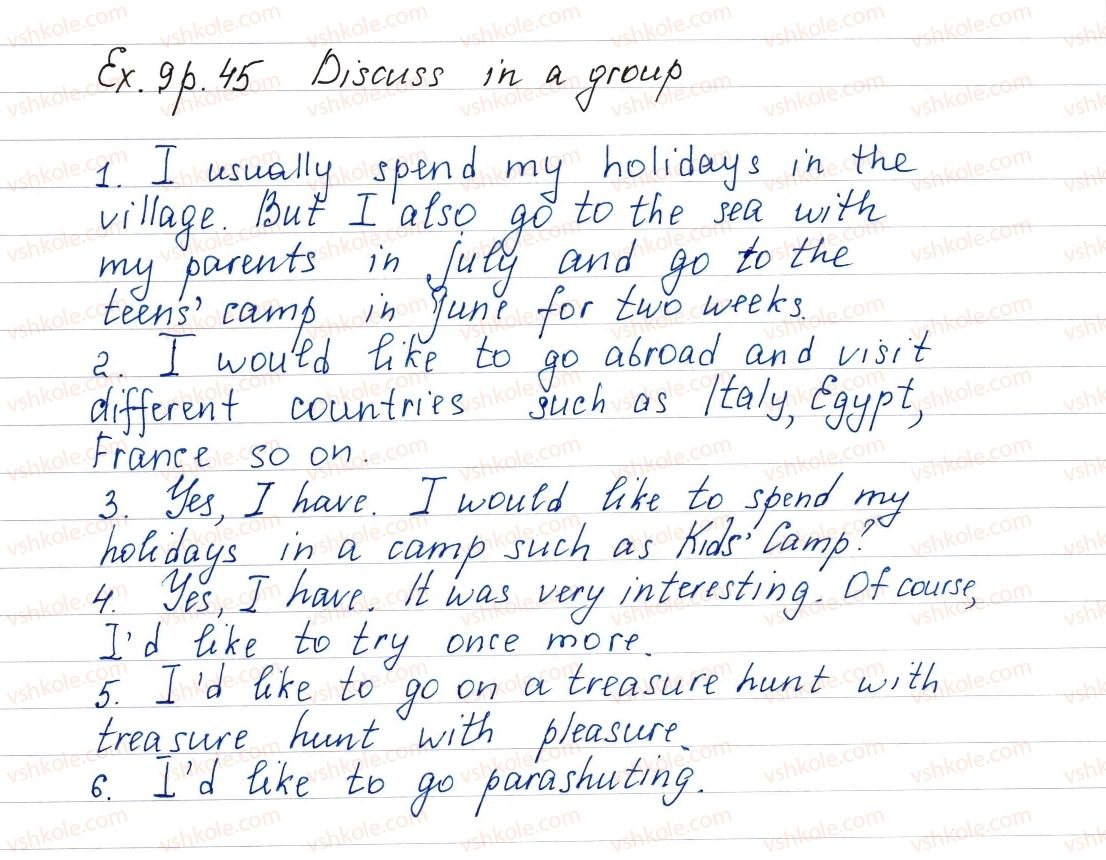 Ex. 9 p. 45 Discuss in a group
1. I usually spend my holidays in the
village. But I also go to the sea with
my parents in July and go to the
teens' camp in June for two weeks.
2. I would like to go abroad and visit
different countries such as Italy, Egypt,
France so on.
3. Yes, I have. I would like to spend my
holidays in a camp such as Kids' Camp?
4. Yes, I have. It was very interesting. Of course,
I'd like to try once more.
5. I'd like to go on a treasure hunt with
treasure hunt with pleasure.
6. I'd like to go parashuting.